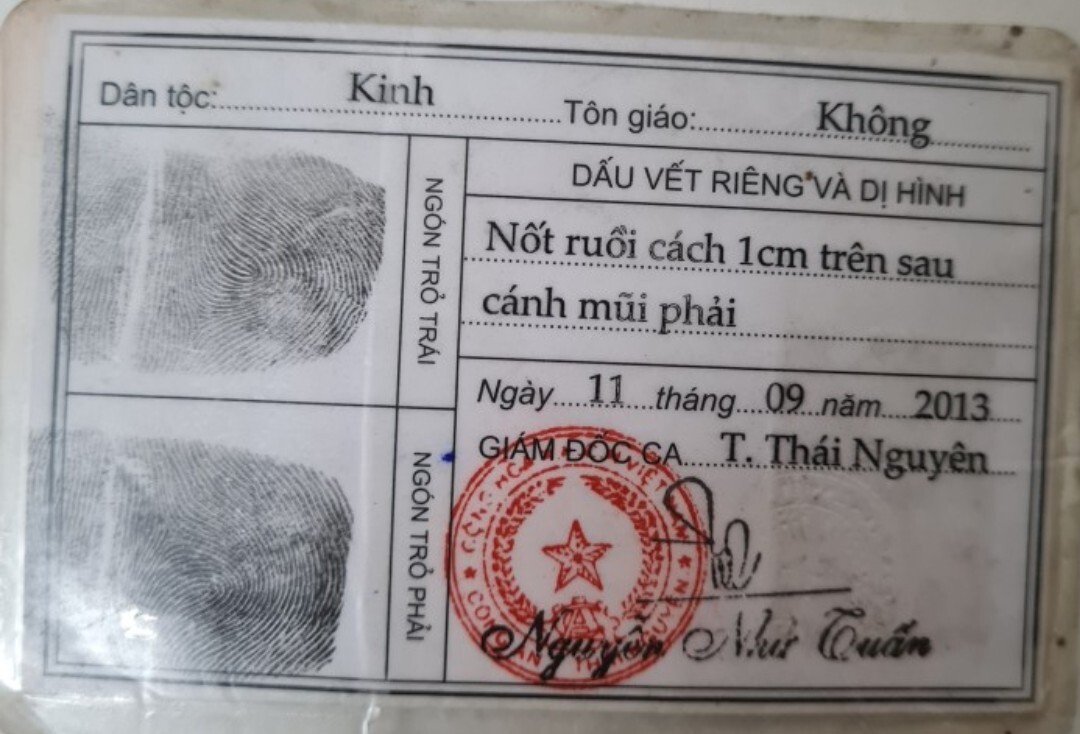 Dân tộc: Kinh Tôn giáo: Không
NGÓN TRỎ TRÁI
DẤU VẾT RIÊNG VÀ DỊ HÌNH
Nốt ruồi cách 1cm trên sau
cánh mũi phải
Ngày 11 tháng 09 năm 2013
GIÁM ĐỐC CA T. Thái Nguyên
NGÓN TRỎ PHẢI
Nguyễn Như Tuấn